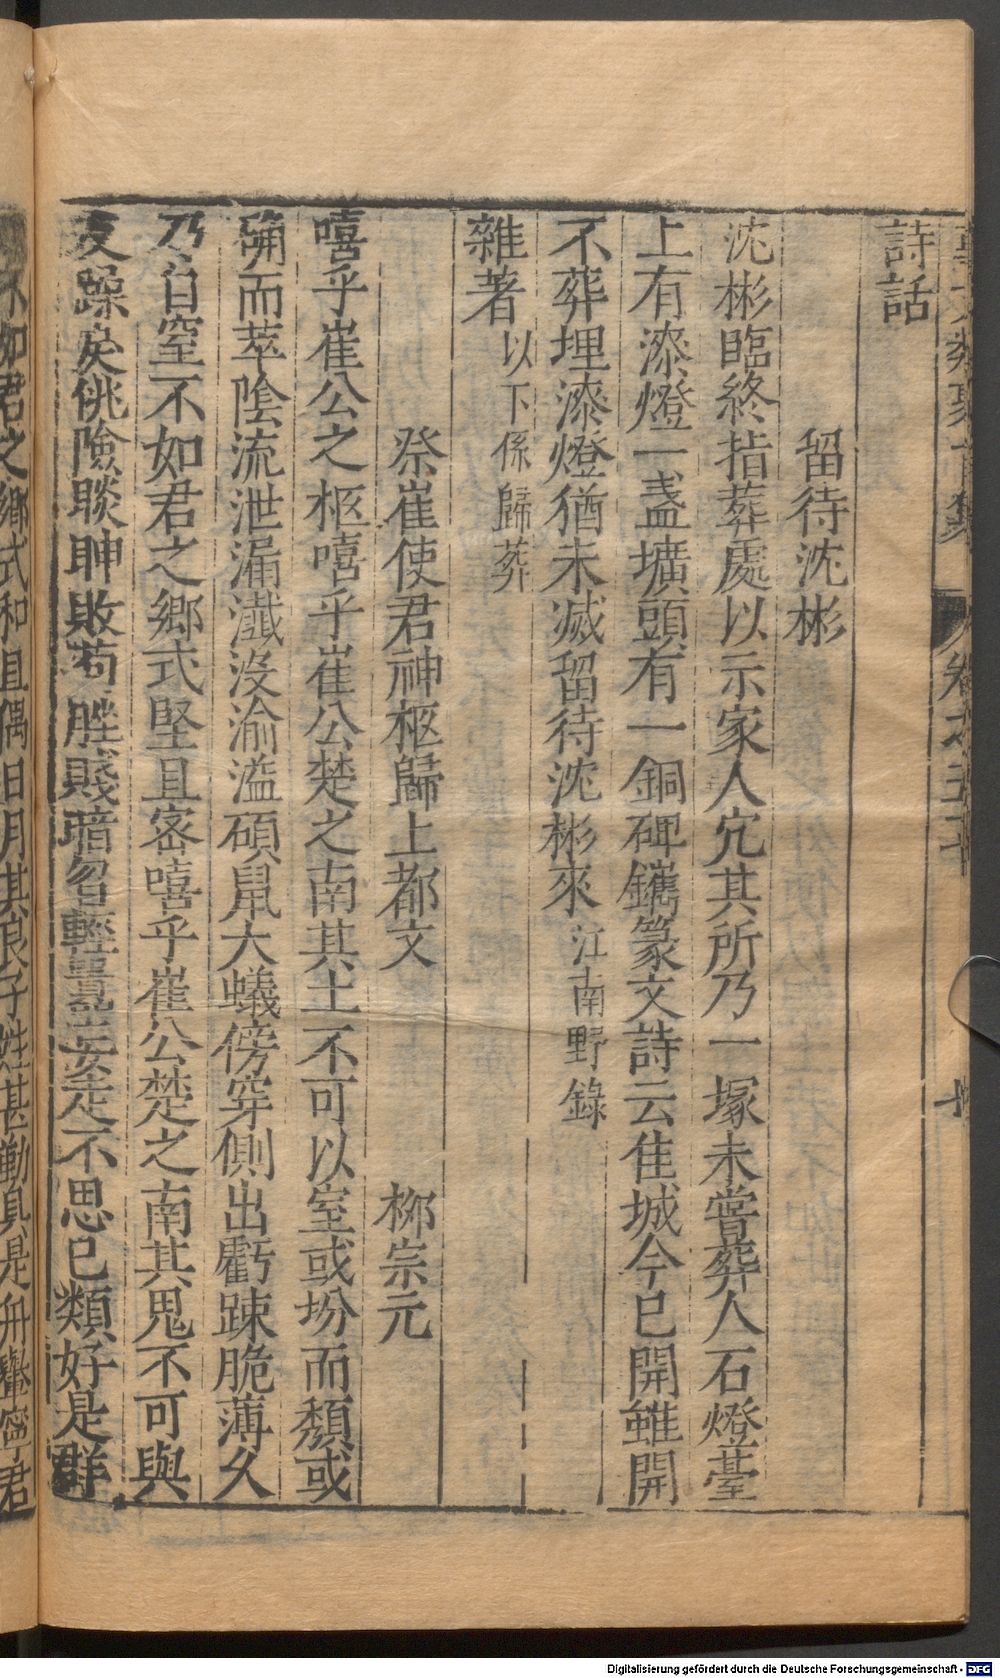 詩話
留待沈彬
沈彬臨終指葬處以示家人穴其所乃一塚未嘗葬人石燈臺
上有漆燈一盞壙頭有一銅碑鐫篆文詩云佳城今已開雖開
不葬埋漆燈猶未滅留待沈彬來江南野錄
雜著以下係歸葬
祭崔使君神柩歸上都文 柳宗元
嘻乎崔公之柩嘻乎崔公楚之南其土不可以室或坋而頹或
确而萃陰流泄漏瀸沒渝溢碩鼠大蟻傍穿側出虧踈脆薄久
乃自窒不如君之鄉式堅且密嘻乎崔公楚之南其鬼不可與
友躁戾佻險睒䀼欺苟脞賤暗曶輕嚚妄走不思已類好是群
不如君之鄉式和且偶日月其良子姓甚勤具是舟轝寧君
Digitalisierung gefördert durch die Deutsche Forschungsgemeinschaft - DFG